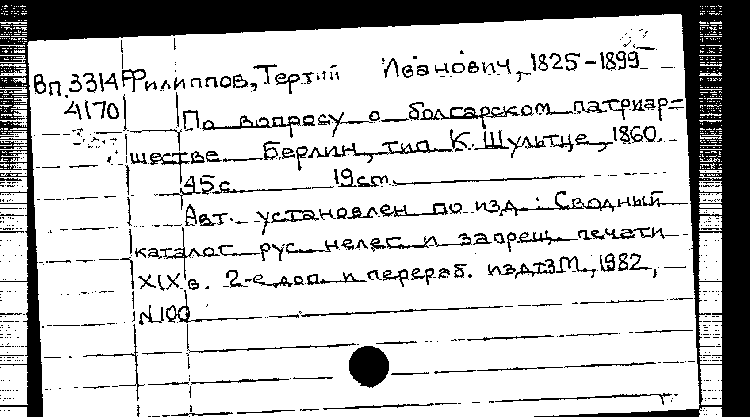 Вп.3314 Филиппов, Тертий Иванович, 1825-1899
4170
По вопросу о болгарском патриар-
шестве. Берлин, тип. К. Шультце, 1860.
45с. 19cm.
Авт. установлен по изд.: Сводный
каталог рус. нелег. и запрещ. печати
XIX в. 2-е доп. и перераб. изд. М., 1982,
N 100